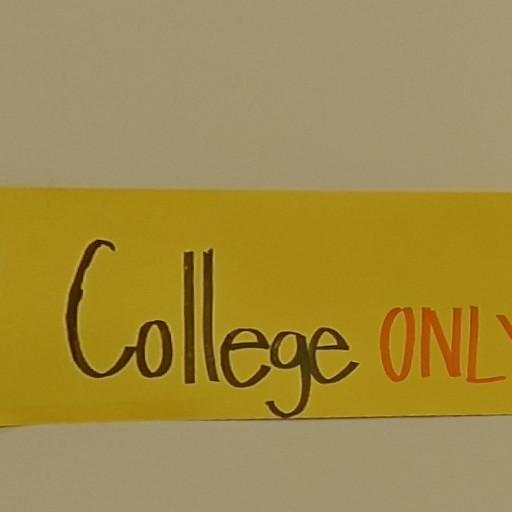 College ONLY